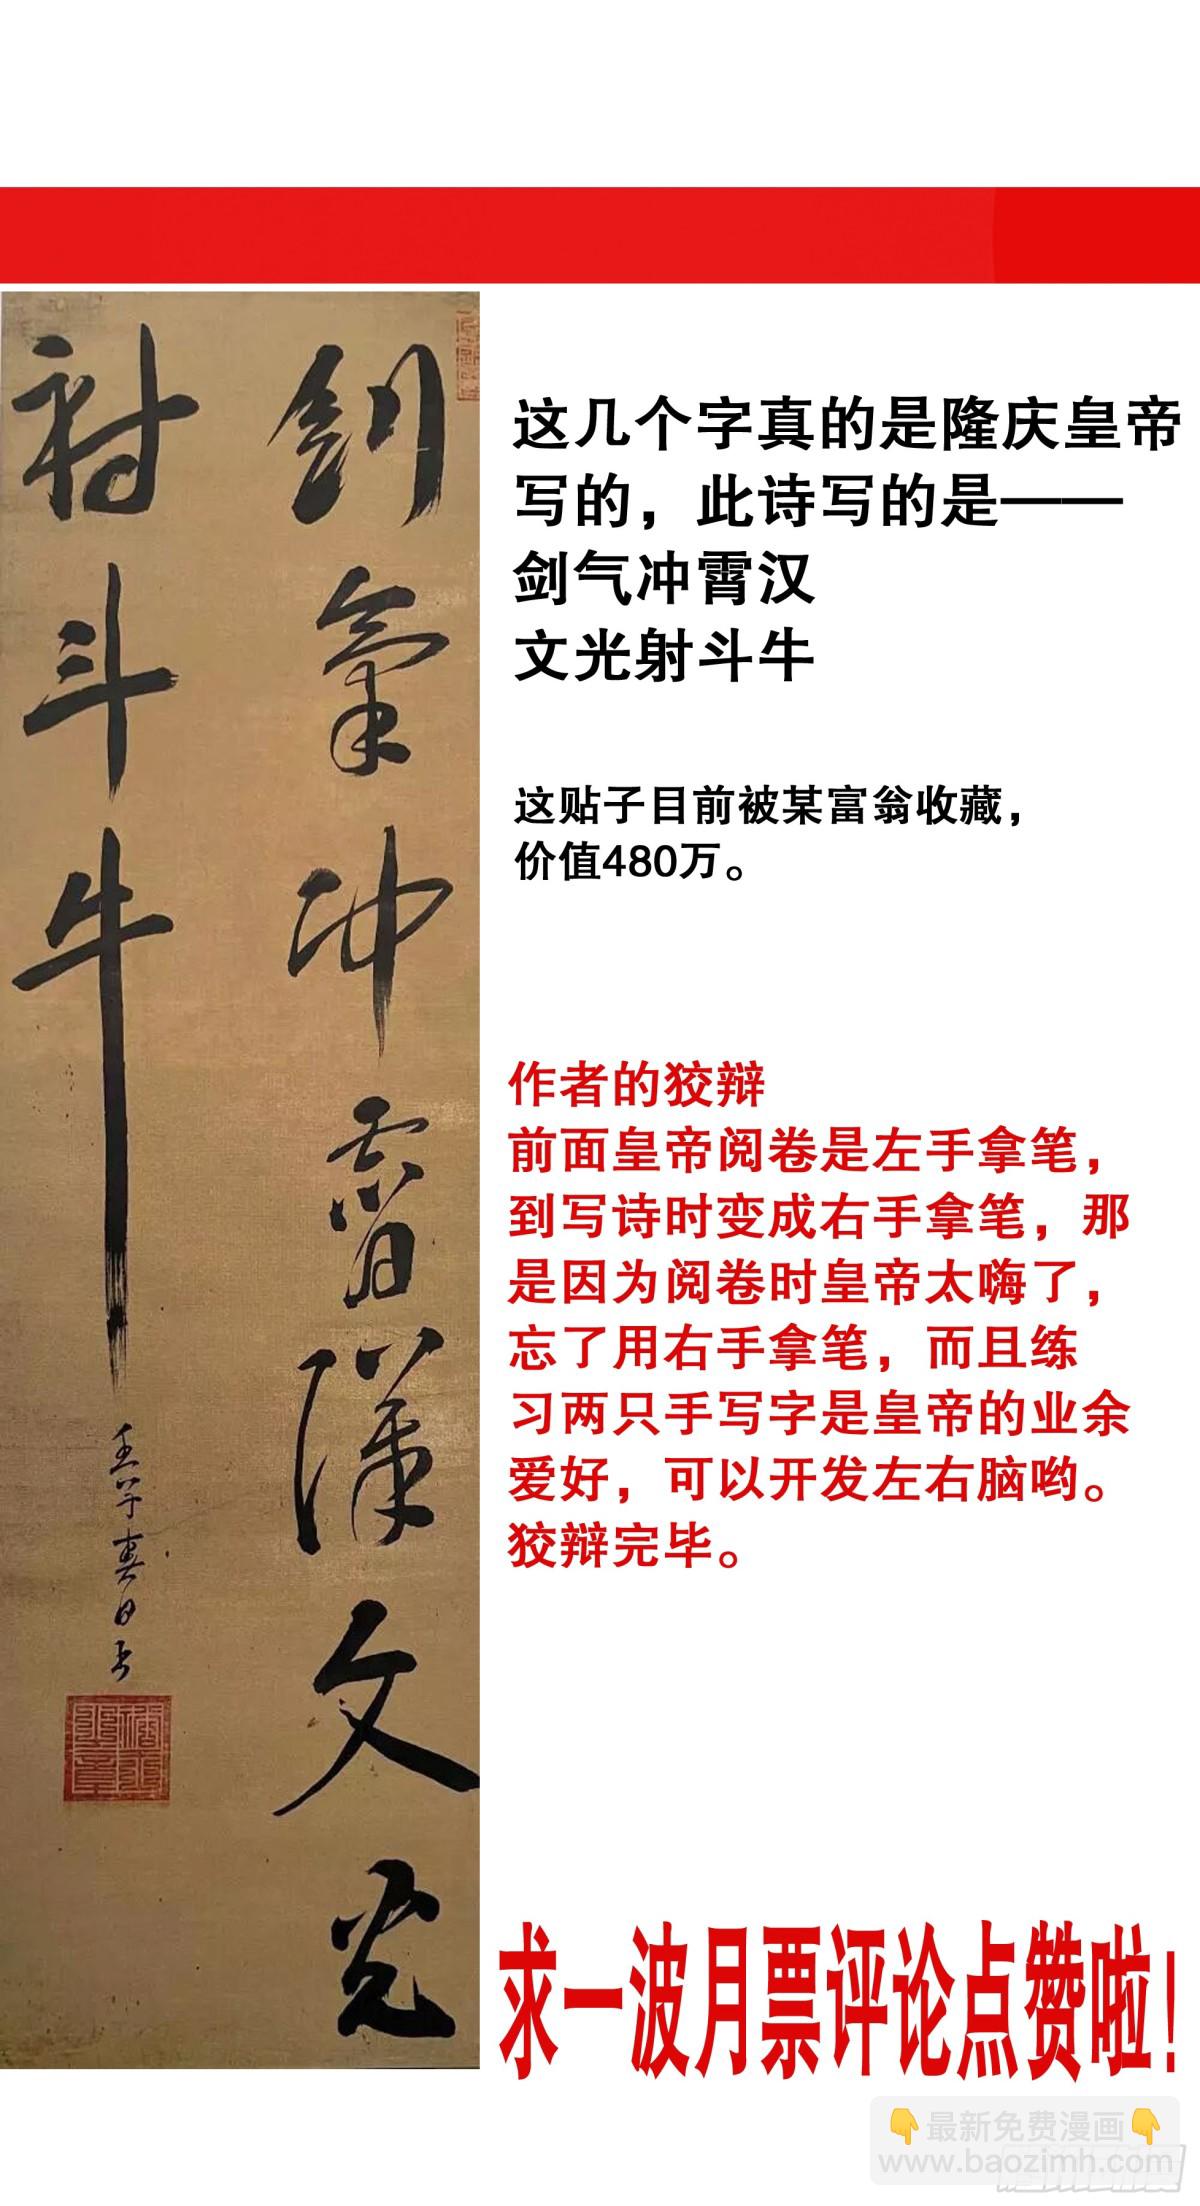 剑氣冲霄漢文光
射斗牛
这几个字真的是隆庆皇帝
写的，此诗写的是——
剑气冲霄汉
文光射斗牛
这贴子目前被某富翁收藏，
价值480万。
作者的狡辩
前面皇帝阅卷是左手拿笔，
到写诗时变成右手拿笔，那
是因为阅卷时皇帝太嗨了，
忘了用右手拿笔，而且练
习两只手写字是皇帝的业余
爱好，可以开发左右脑哟。
狡辩完毕。
求一波月票评论点赞啦！
👇最新免费漫画👇
www.baozimh.com